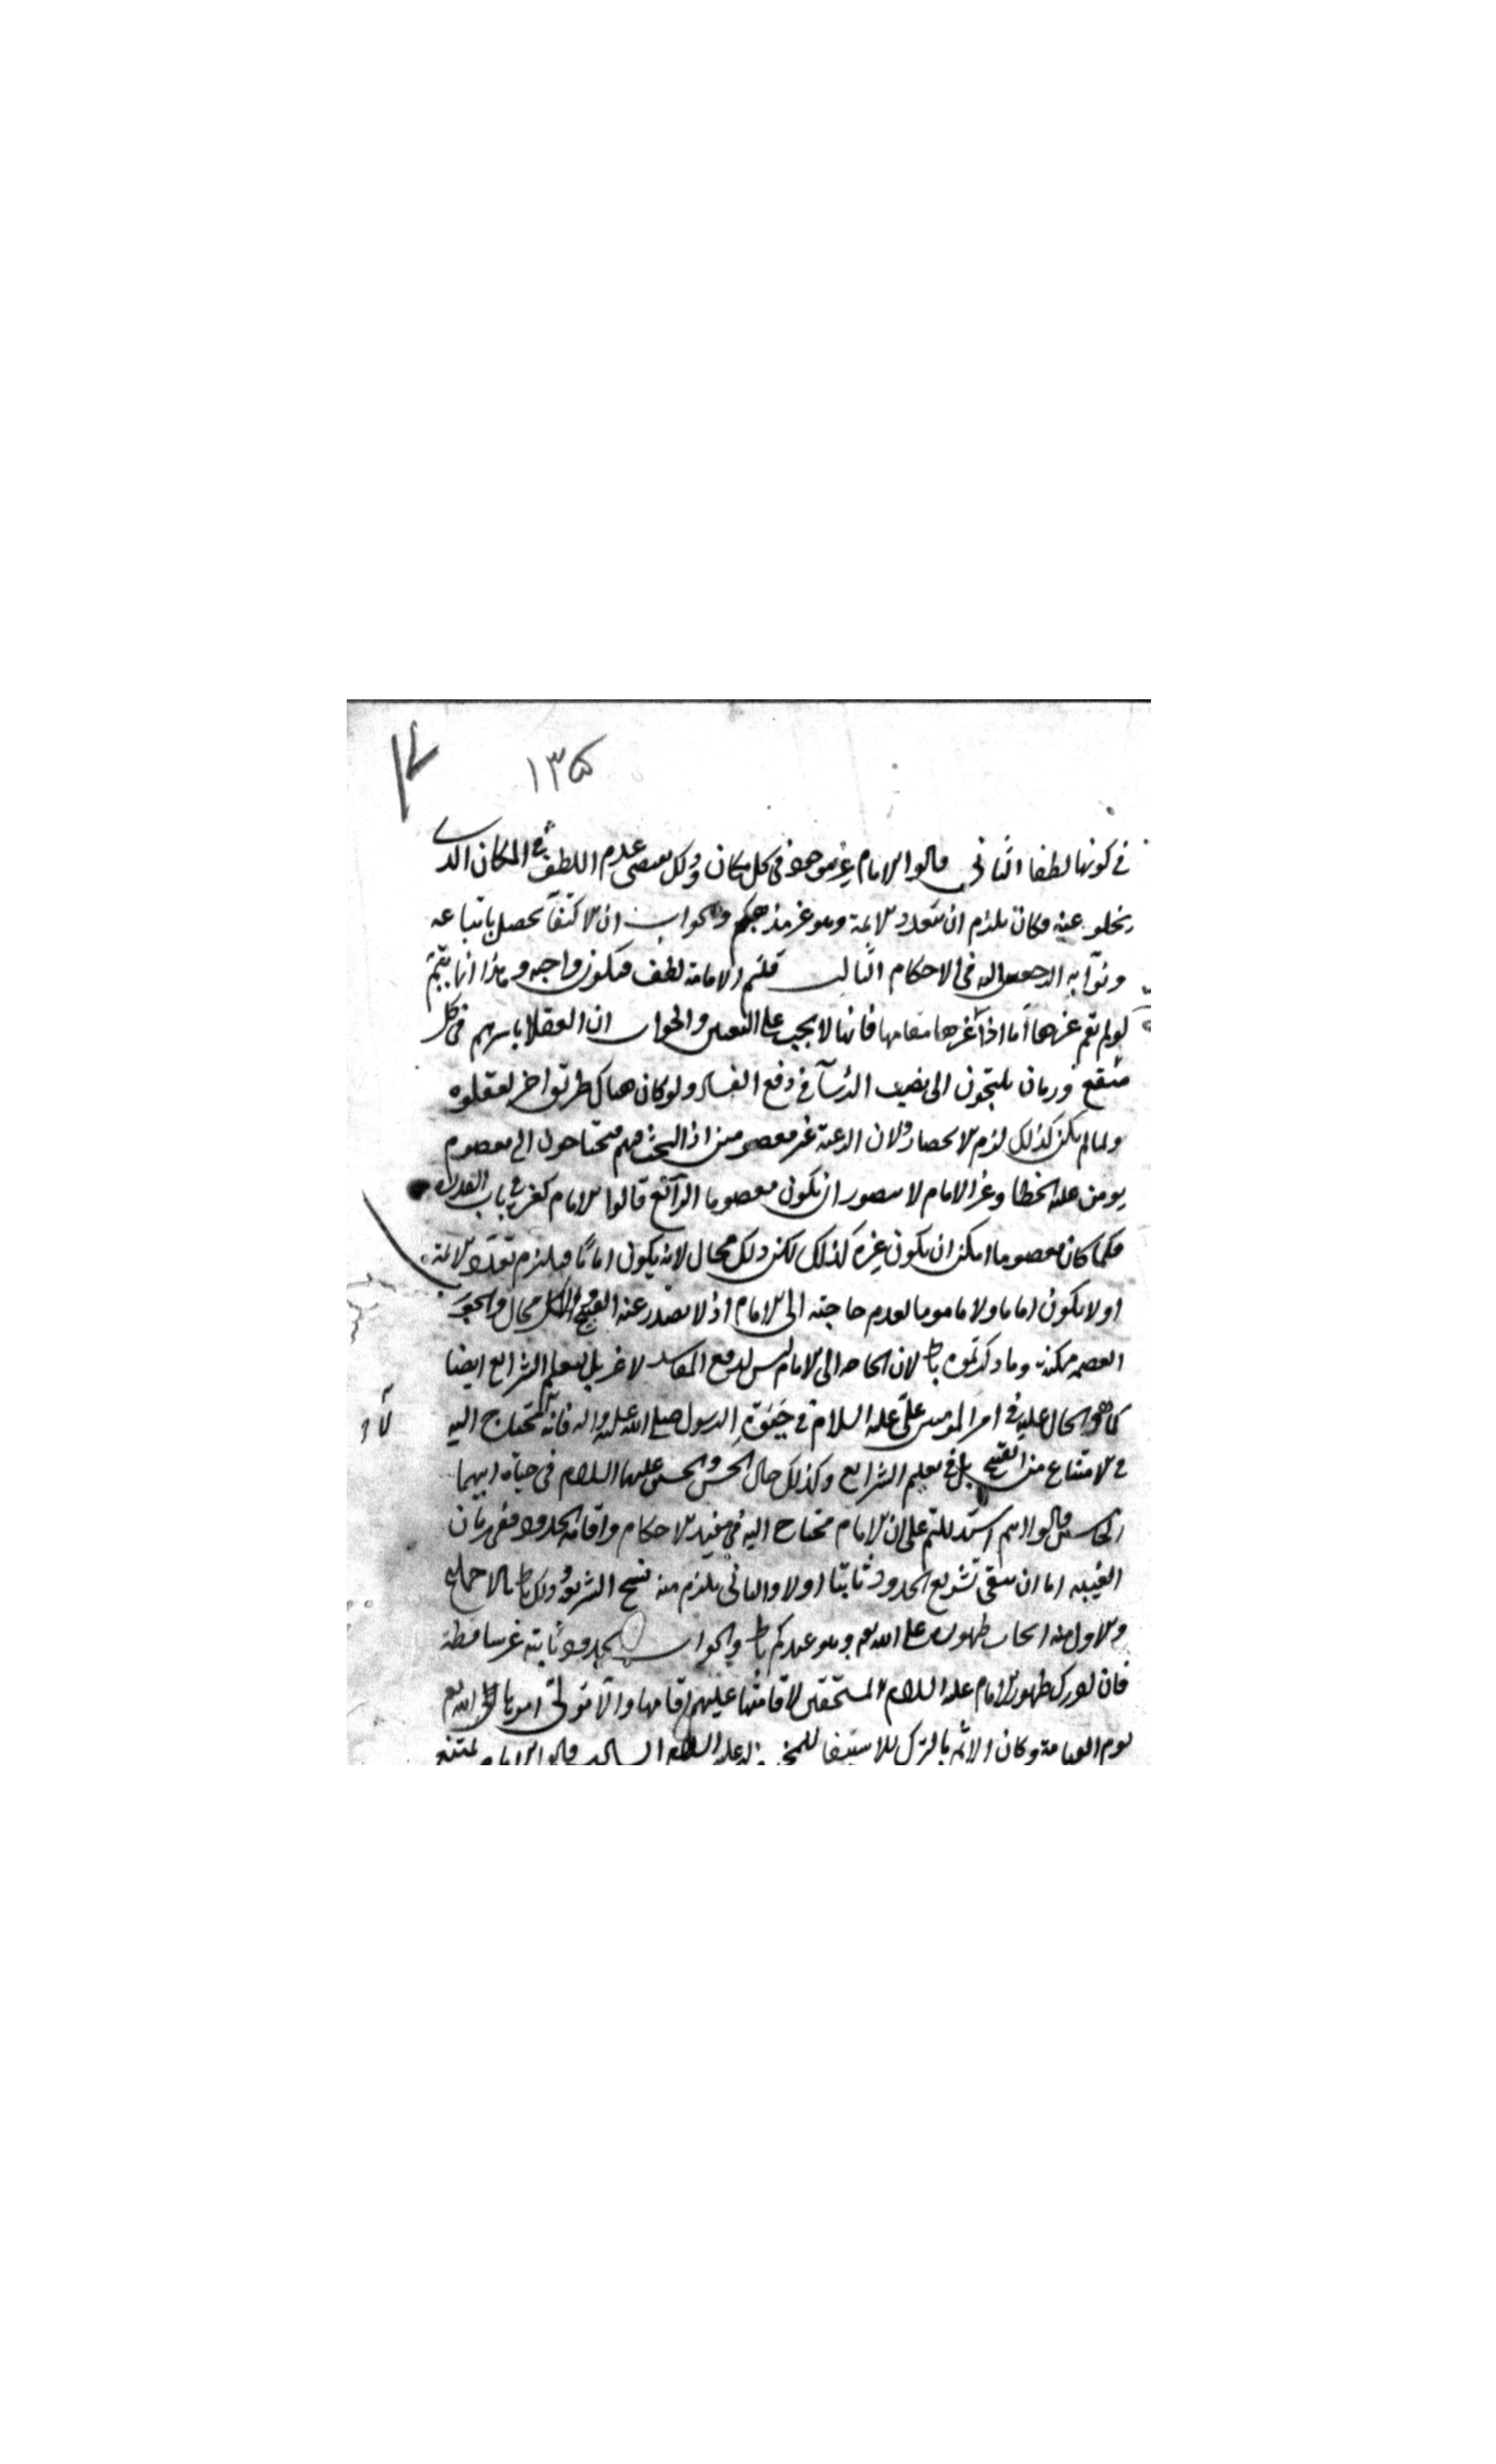 ١٣٥
في كونها لطفا الثاني قالوا الامام غير موجود في كل مكان وذلك يقتضي عدم اللطف في المكان الذي
يخلو عنه وكان يلزم ان يتعدد الايمة وهو غير مذهبكم والجواب ان الاكتفآ يحصل باتباعه
ونوّابه الى الاحكام الثالث قلتم الامامة لطف فيكون واجبه وهذا انما يتم
لو لم تقم غيرها اما اذا غيرها مقامها فانها لا يجب على التعيين والجواب ان العقلا باسرهم في كل
صقع وزمان يلتجون الى نصب الرئسآ في دفع الفساد ولو كان هناك طريق اخر لعقلوه
ولما لم يكن كذلك لزم الانحصار ولان الرعية غير معصومين اذ البحث فيهم فيحتاجون الى معصوم
يومن عليه الخطا وغير الامام لا يتصور ان يكون معصوما الرآبع قالوا الامام كغيره في باب القدرة
فكما كان معصوما امكن ان يكون غيره كذلك لكن ذلك محال لانه يكون اماما فيلزم تعدد الايمة
او لا يكون اماما ولا ماموما لعدم حاجته الى الامام اذ لا يصدر عنه القبيح والكل محال والجواب
العصمه ممكنة وما ذكرتموه باطل لان الحاجه الى الامام ليس لدفع المفاسد لا غير بل لتعليم الشرايع ايضا
كما هو الحال عليه في امير المومنين عليّ عليه السلام في حيوة الرسول صلى الله عليه واله فانه يحتاج اليه
في الامتناع من القبيح بل في تعليم الشرايع وكذلك حال الحسن والحسين عليهما السلام في حياة ابيهما
الخامس قالوا انتم استدللتم على ان الامام محتاج اليه في تنفيذ الاحكام واقامة الحدود ففي زمان
الغيبة اما ان يبقى تشريع الحدود ثابتا اولا والثاني يلزم منه نسخ الشريعة وذلك باطل بالاجماع
والاول منه ايجاب ظهوره على الله تعالى وهو عندكم باطل والجواب الحدود ثابتة غير ساقطة
فان ادرك ظهور الامام عليه السلام المستحقين لاقامتها عليهم اقامها والا تولى الله تعم
يوم القيامة وكان الاثم بالترك للاستيفا عليه السلام السادس قالوا الامام